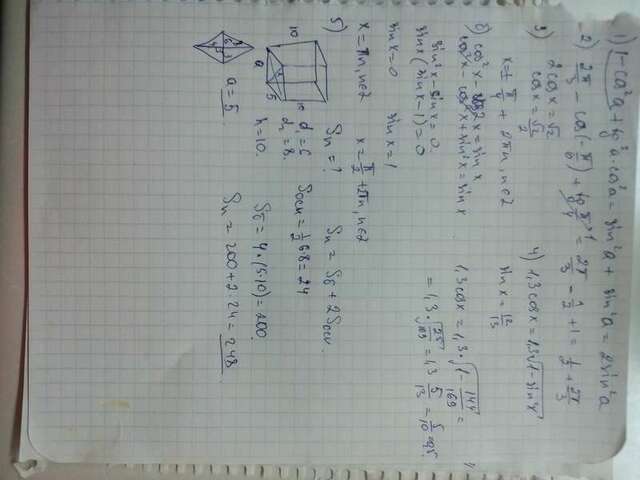 1) 1-cos²a+tg²a·cos²a = sin²a + sin²a = 2sin²a
2) 2π/3 - cos(-π/6) + tg π/4 = 2π/3 - 1/2 + 1 = 1/2 + 2π/3
3) 2cosx=√2
cosx=√2/2
x=± π/4 + 2πn, n∈Z
4) 1,3cosx=1,3√1-sin²x
sinx = 12/13
1,3cosx = 1,3·√1-144/169 =
= 1,3·√25/169 = 1,3 5/13 = 5/10 = 0,5.
6) cos²x - cos2x = sinx
cos²x - cos²x + sin²x = sinx
sin²x - sinx = 0.
sinx(sinx-1)=0
sinx=0 sinx=1
x=πn, n∈Z x=π/2+2πn, n∈Z
5) Sп=? Sп = Sб + 2Sосн.
10
a
5
10
d₁=6
d₂=8.
h=10.
Sосн = 1/2 6·8 = 24
Sб = 4·(5·10)=200.
a=5
Sп = 200+2·24 = 248.